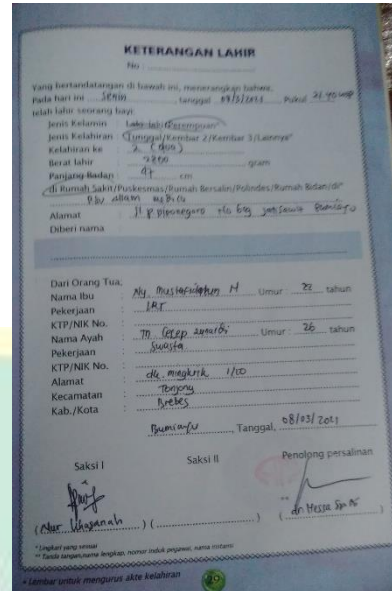 KETERANGAN LAHIR
No :
Yang bertandatangan di bawah ini, menerangkan bahwa;
Pada hari ini Senin tanggal 08/3/2021 Pukul 21.40 WIB
telah lahir seorang bayi:
Jenis Kelamin : Laki-laki/Perempuan*
Jenis Kelahiran : Tunggal/Kembar 2/Kembar 3/Lainnya*
Kelahiran ke : 2 (dua)
Berat lahir : 2800 gram
Panjang Badan : 47 cm
di Rumah Sakit/Puskesmas/Rumah Bersalin/Polindes/Rumah Bidan/di*
Alamat : Jl. p. diponegoro jatisawit Bumiayu
Diberi nama :
Dari Orang Tua;
Nama Ibu : Ny. M Umur : 22 tahun
Pekerjaan : IRT
KTP/NIK No. :
Nama Ayah : Tn. Umur : 26 tahun
Pekerjaan : Swasta
KTP/NIK No. :
Alamat : dk. 1/00
Kecamatan : Tonjong
Kab./Kota : Brebes
Bumiayu, Tanggal, 08/03/2021
Saksi I Saksi II Penolong persalinan
(Nur Khasanah) ( ) (dr. Hessa )
* Lingkari yang sesuai
** Tanda tangan,nama lengkap, nomor induk pegawai, nama instansi
• Lembar untuk mengurus akte kelahiran